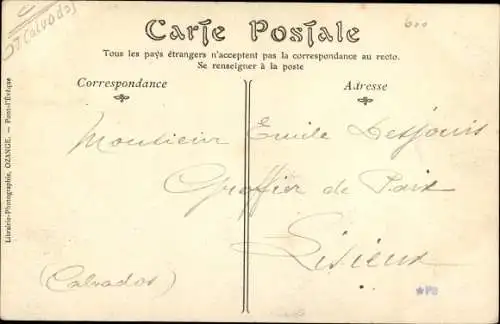 (Calvados)
600
Carte Postale
Tous les pays étrangers n'acceptent pas la correspondance au recto.
Se renseigner à la poste
Correspondance
Adresse
Monsieur Emile Desjouis
Greffier de Paix
Lisieux
(Calvados)
Librairie-Photographie, OZANGE. — Pont-l'Évêque